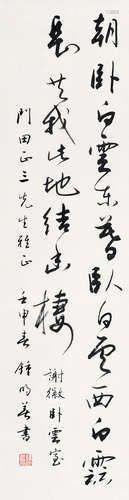 朝卧白雲東暮卧白雲西白雲
長共我此地结幽棲
謝徽卧雲室
門田正三先生雅正
壬申春 鍾明善書